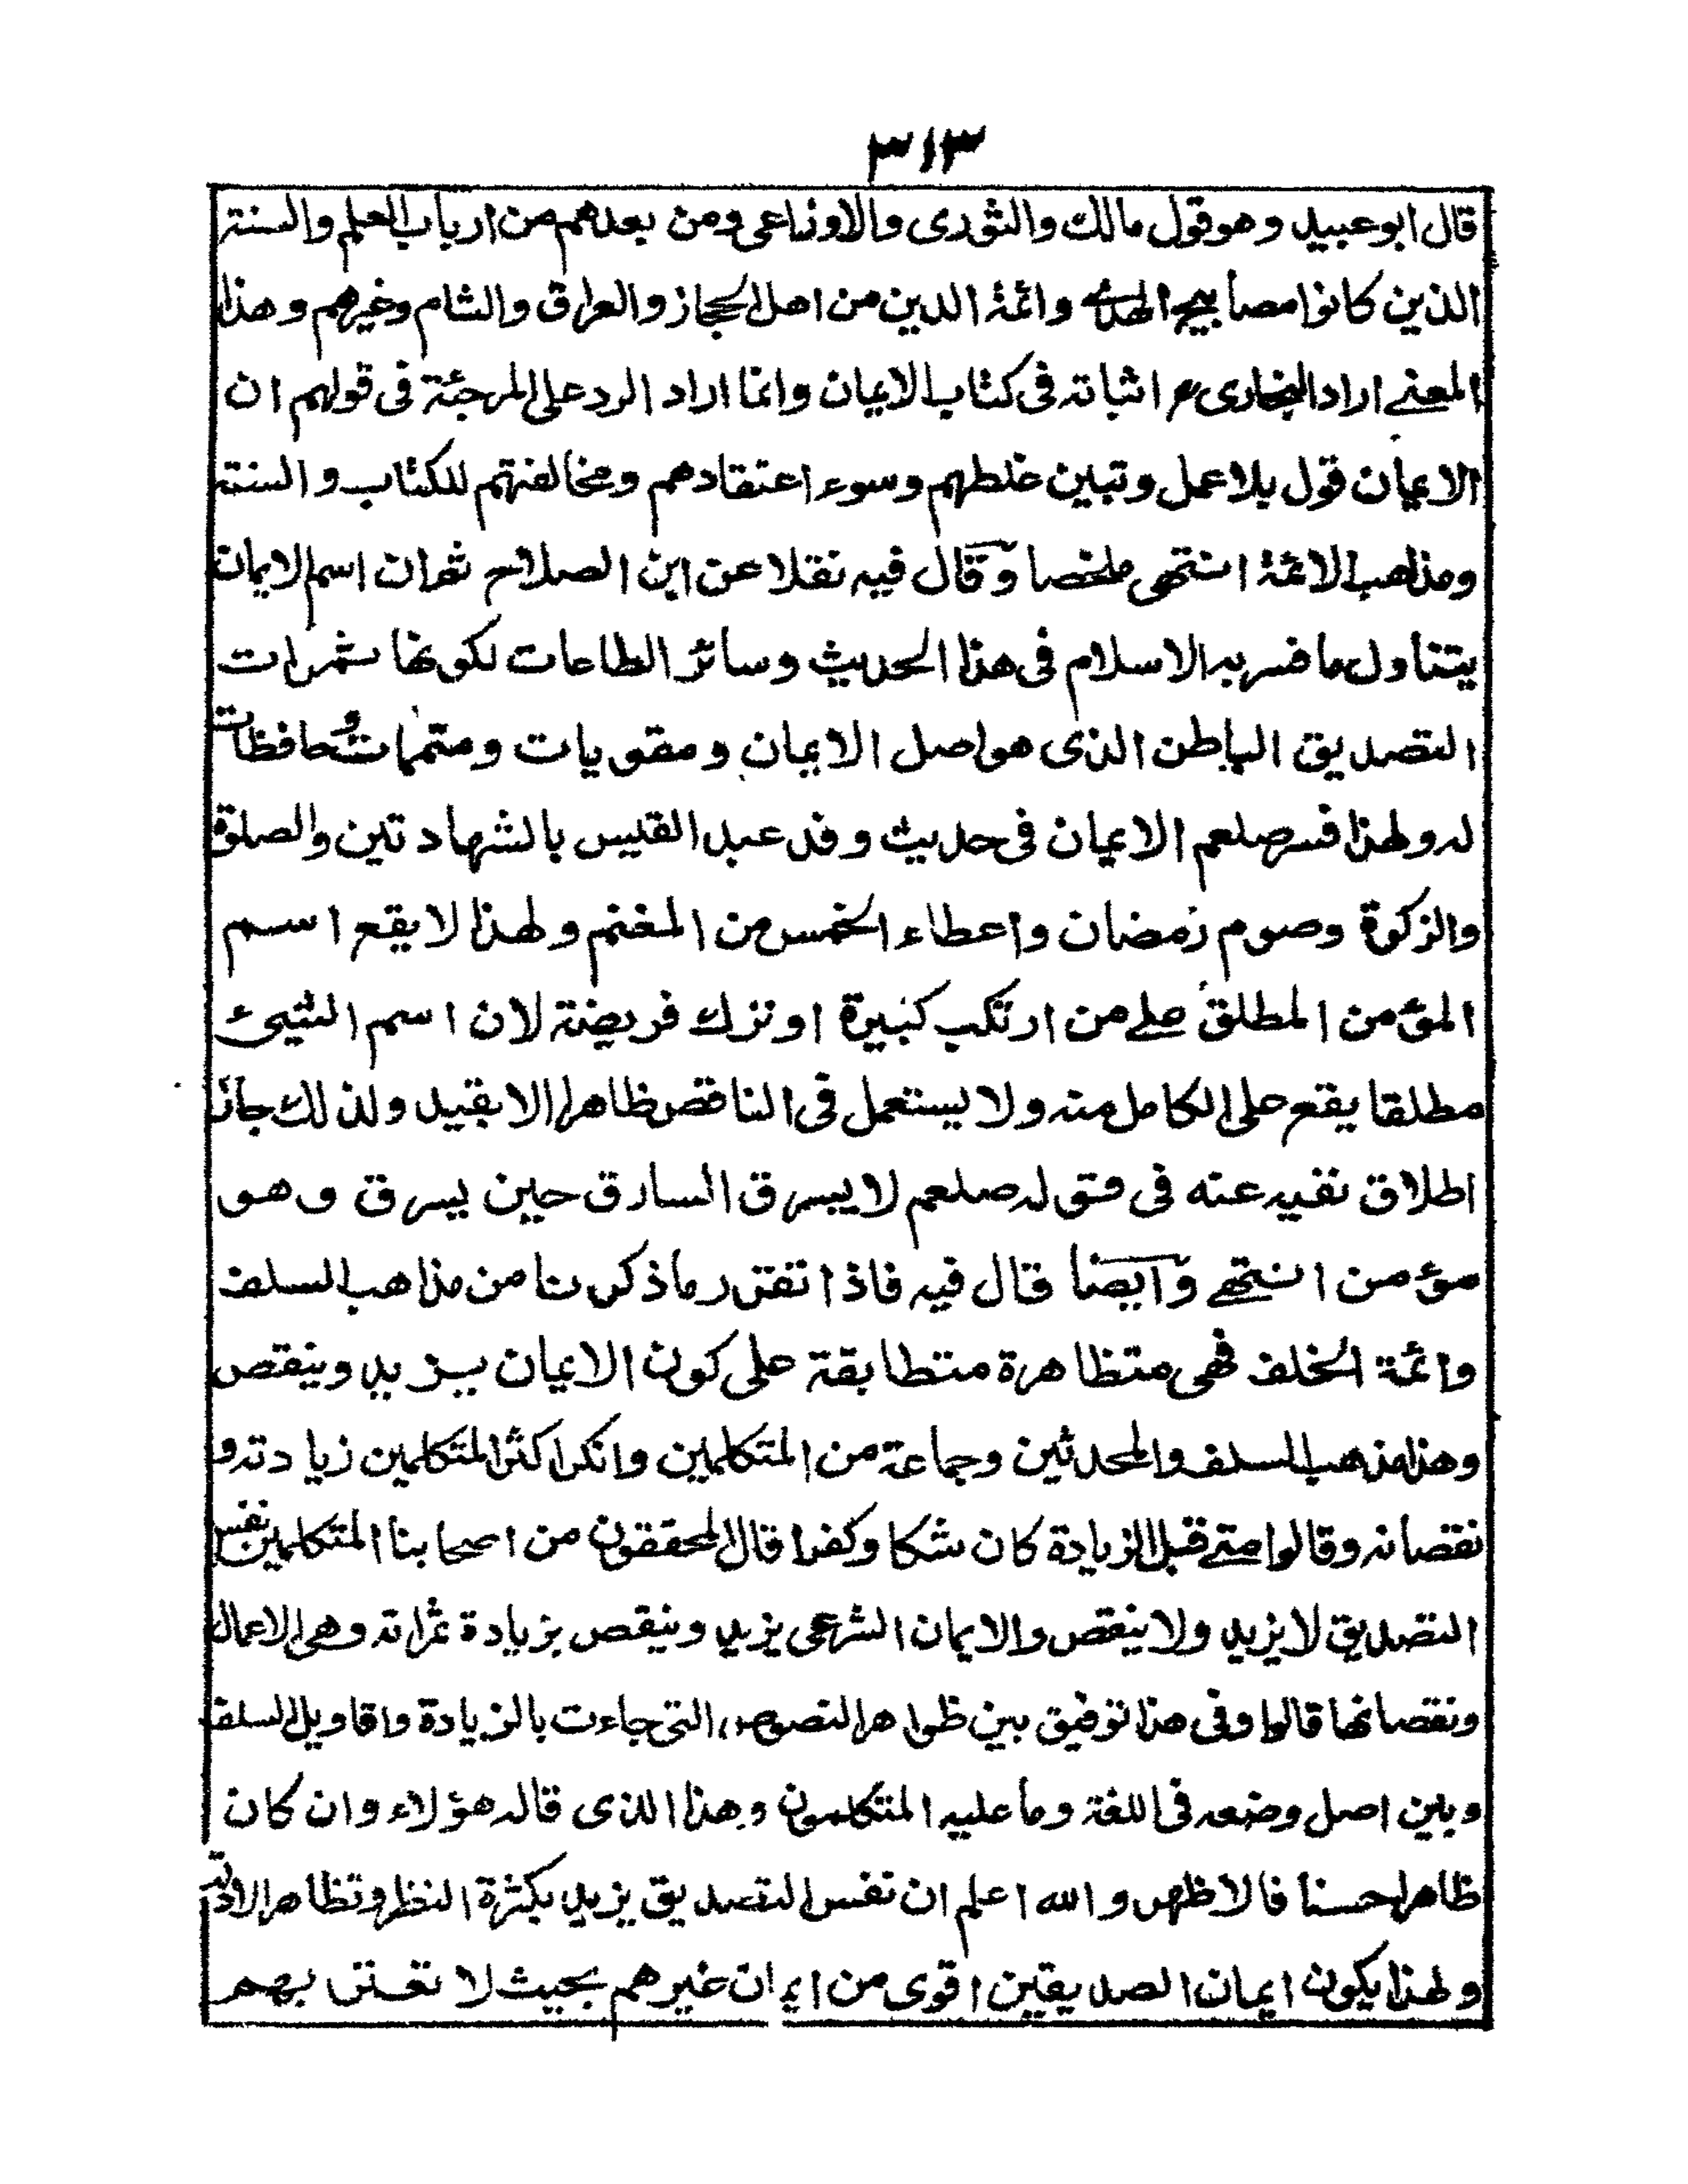 ٣١٣
قال ابو عبيد وهو قول مالك والثورى والاوزاعى ومن بعدهم من ارباب العلم والسنة
الذين كانوا مصابيح الهدى وائمة الدين من اهل الحجاز والعراق والشام وغيرهم وهذا
المعنى اراد البخارى اثباته فى كتاب الايمان وانما اراد الرد على المرجئة فى قولهم ان
الايمان قول بلا عمل وتبين غلطهم وسوء اعتقادهم ومخالفتهم للكتاب والسنة
ومذاهب الائمة انتهى ملخصا وقال فيه نقلا عن ابن الصلاح ثم ان اسم الايمان
يتناول ما فسر به الاسلام فى هذا الحديث وسائر الطاعات لكونها ثمرات
التصديق الباطن الذى هو اصل الايمان ومقويات ومتممات وحافظات
له ولهذا فسر صلعم الايمان فى حديث وفد عبد القيس بالشهادتين والصلوة
والزكوة وصوم رمضان واعطاء الخمس من المغنم ولهذا لا يقع اسم
المؤمن المطلق على من ارتكب كبيرة او ترك فريضة لان اسم الشيئ
مطلقا يقع على الكامل منه ولا يستعمل فى الناقص ظاهرا الا بقيد ولذلك جاز
اطلاق نفيه عنه فى قوله صلعم لا يسرق السارق حين يسرق وهو
مؤمن انتهى وايضا قال فيه فاذا تقرر ما ذكرنا من مذاهب السلف
وائمة الخلف فهى متظاهرة متطابقة على كون الايمان يزيد وينقص
وهذا مذهب السلف والمحدثين وجماعة من المتكلمين وانكر اكثر المتكلمين زيادته و
نقصانه وقالوا متى قبل الزيادة كان شكا وكفرا قال المحققون من اصحابنا المتكلمين نفس
التصديق لا يزيد ولا ينقص والايمان الشرعى يزيد وينقص بزيادة ثمراته وهى الاعمال
ونقصانها قالوا وفى هذا توفيق بين ظواهر النصوص التى جاءت بالزيادة واقاويل السلف
وبين اصل وضعه فى اللغة وما عليه المتكلمون وهذا الذى قاله هؤلاء وان كان
ظاهرا حسنا فالاظهر والله اعلم ان نفس التصديق يزيد بكثرة النظر وتظاهر الادلة
ولهذا يكون ايمان الصديقين اقوى من ايمان غيرهم بحيث لا تعترى بهم